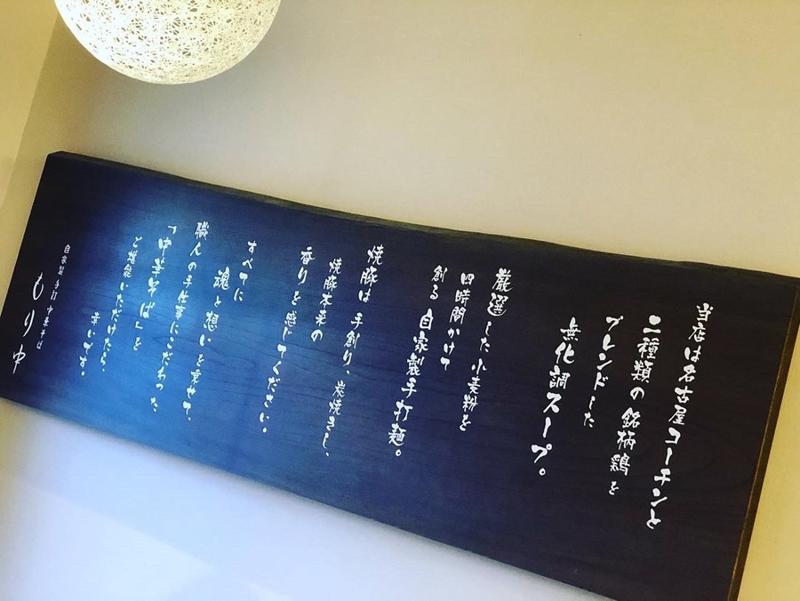 当店は名古屋コーチンと
二種類の銘柄鶏を
ブレンドした
無化調スープ。
厳選した小麦粉を
四時間かけて
創る自家製手打麺。
焼豚は手創り、炭焼きし、
焼豚本来の
香りを感じてください。
すべてに
魂と想いを乗せて、
職人の手仕事にこだわった
「中華そば」を
ご堪能いただけたら、
幸いです。
自家製手打中華そば
もり中